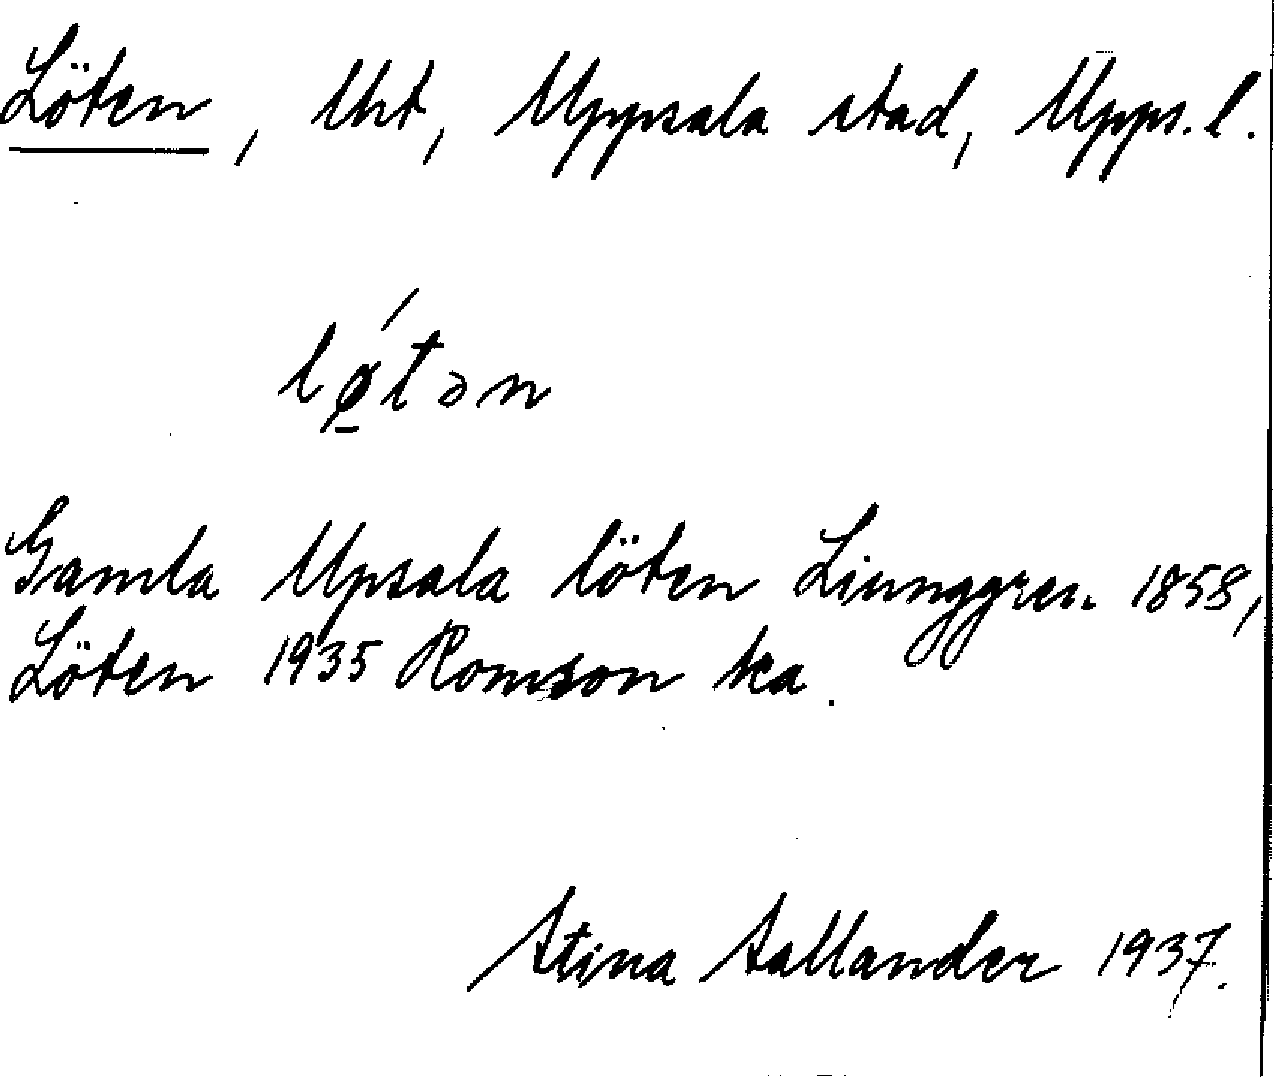 Löten, Uht, Uppsala stad, Upps. l.
lø̱´tən
Gamla Upsala löten Liunggren 1858,
Löten 1935 Romson ka.
Stina Sallander 1937.